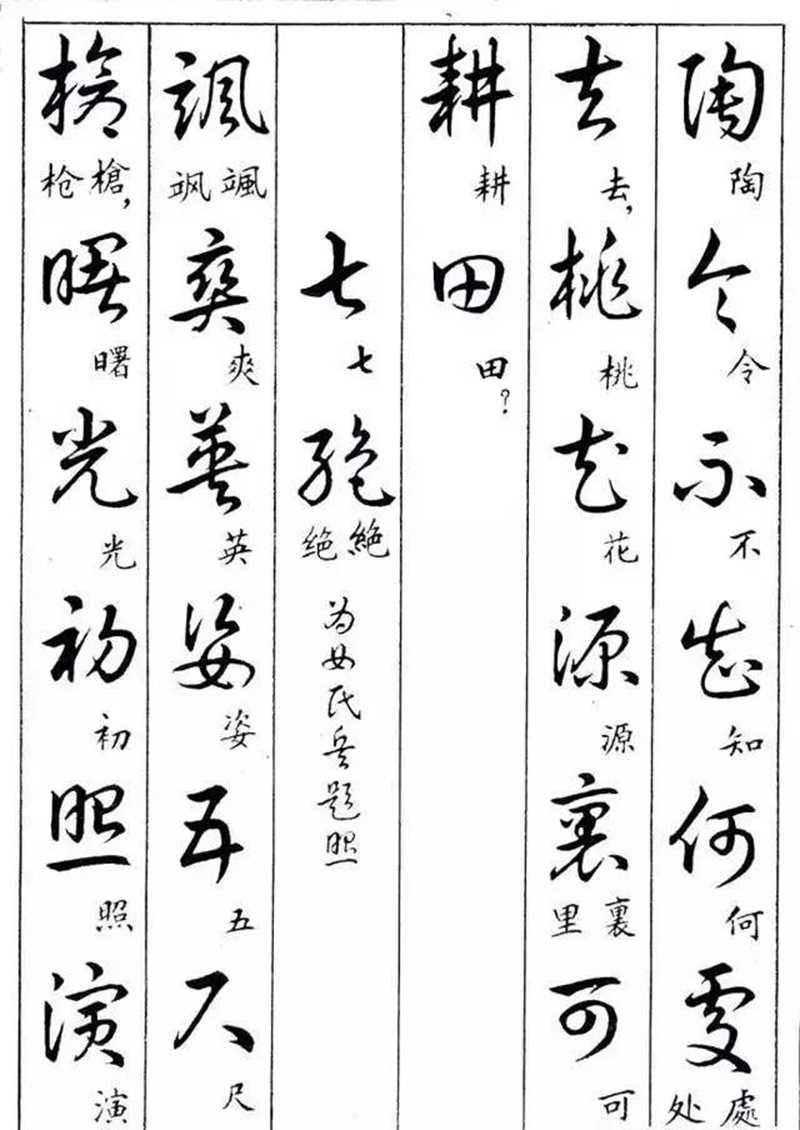 陶陶令令不不知知何何處處处
去去，桃桃花花源源裏裏里可可
耕耕田田？
七七絶絶绝为女民兵题照
颯颯飒爽爽英英姿姿五五尺尺
槍槍，枪曙曙光光初初照照演演